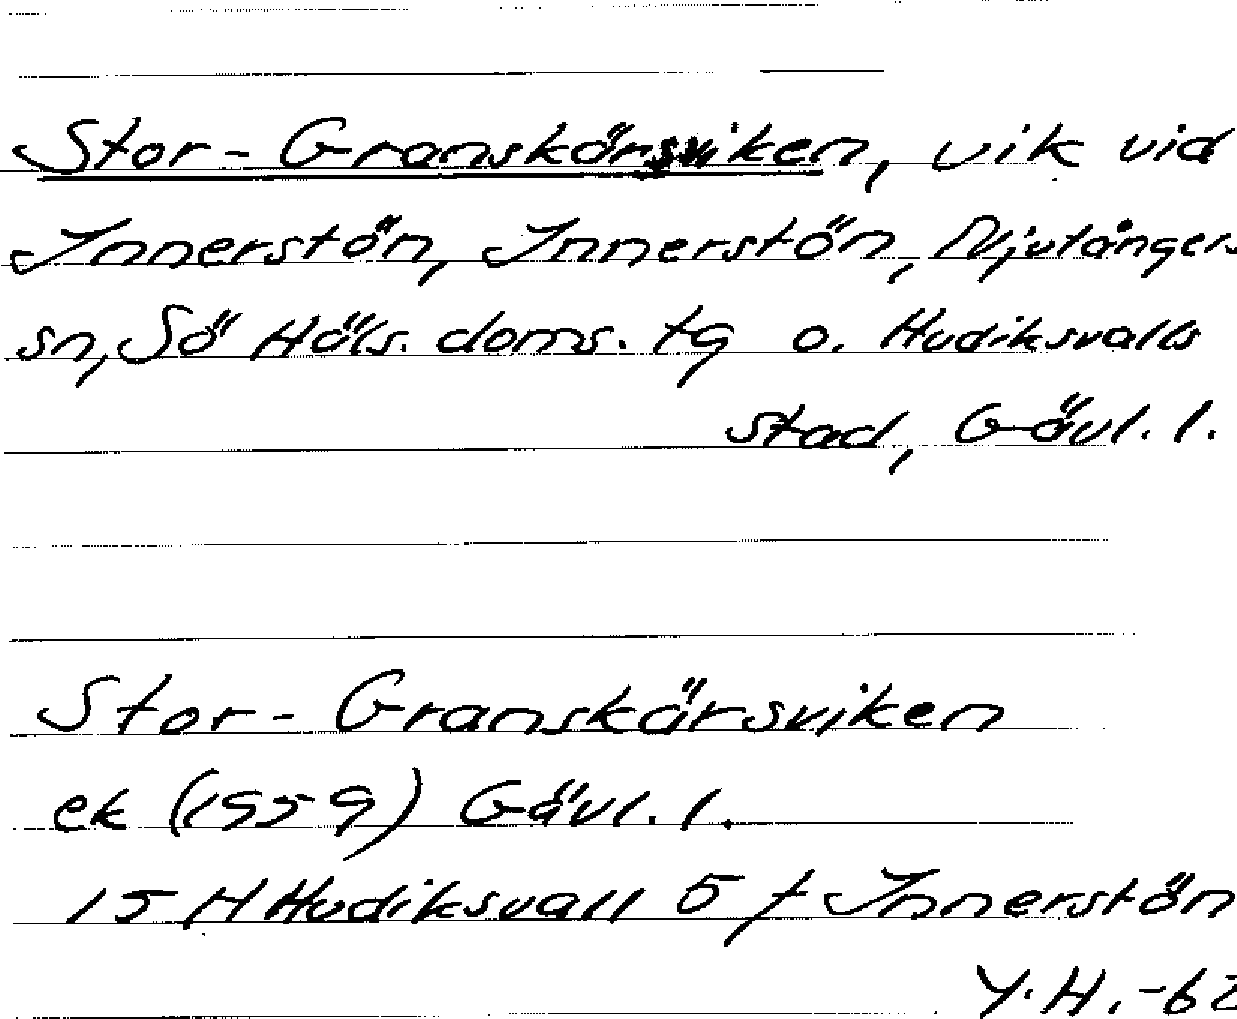 Stor-Granskärsviken, vik vid
Innerstön, Innerstön, Njutångers
sn, Sö Häls. doms. tg o. Hudiksvalls
stad, Gävl. l.
Stor-Granskärsviken
ek (1959) Gävl. l.
15 H Hudiksvall 5 f Innerstön
Y.H. -62